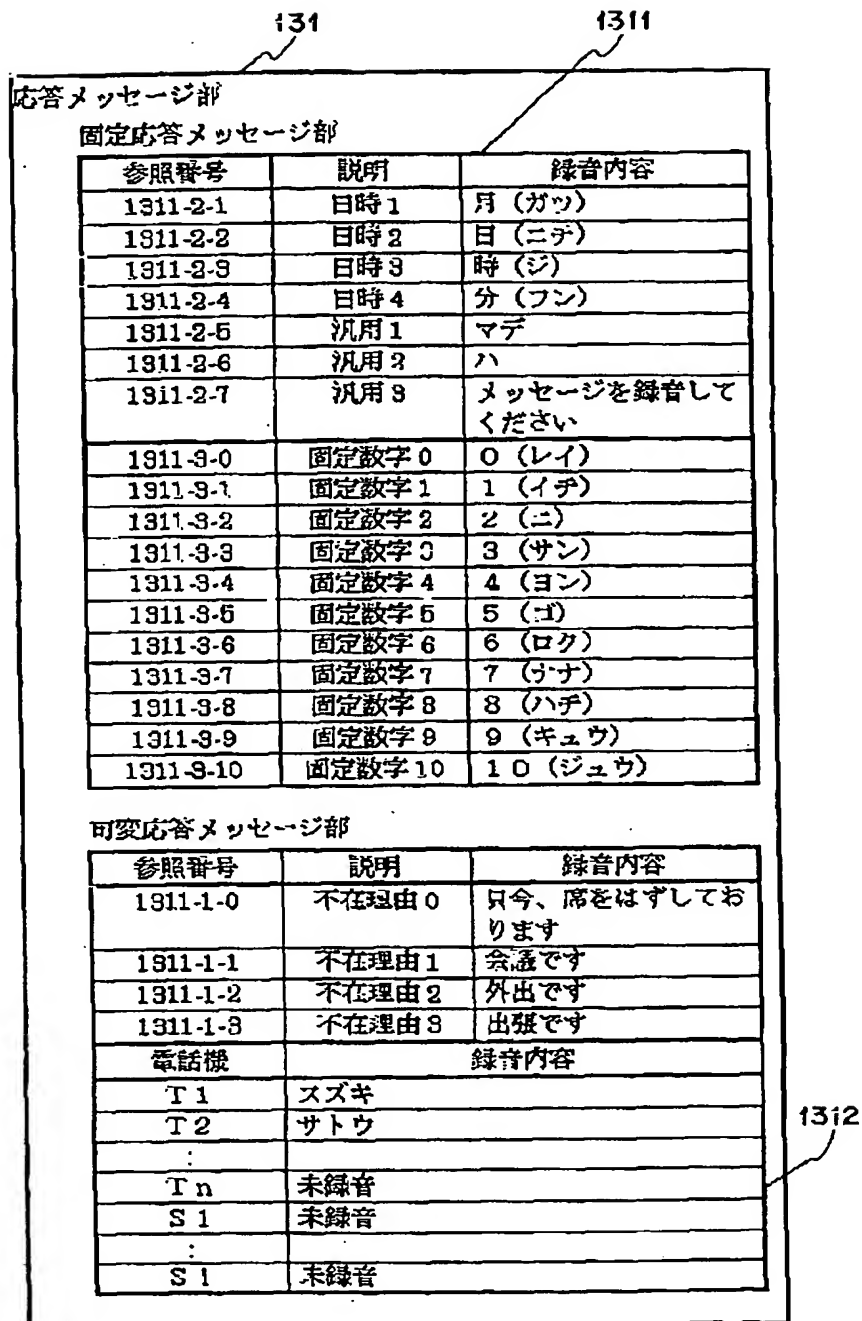 131 1311
応答メッセージ部
固定応答メッセージ部
参照番号 説明 録音内容
1311-2-1 日時1 月（ガツ）
1311-2-2 日時2 日（ニチ）
1311-2-3 日時3 時（ジ）
1311-2-4 日時4 分（フン）
1311-2-5 汎用1 マデ
1311-2-6 汎用2 ハ
1311-2-7 汎用3 メッセージを録音して
ください
1311-3-0 固定数字0 0（レイ）
1311-3-1 固定数字1 1（イチ）
1311-3-2 固定数字2 2（ニ）
1311-3-3 固定数字3 3（サン）
1311-3-4 固定数字4 4（ヨン）
1311-3-5 固定数字5 5（ゴ）
1311-3-6 固定数字6 6（ロク）
1311-3-7 固定数字7 7（ナナ）
1311-3-8 固定数字8 8（ハチ）
1311-3-9 固定数字9 9（キュウ）
1311-3-10 固定数字10 10（ジュウ）
可変応答メッセージ部
参照番号 説明 録音内容
1311-1-0 不在理由0 只今、席をはずしてお
ります
1311-1-1 不在理由1 会議です
1311-1-2 不在理由2 外出です
1311-1-3 不在理由3 出張です
電話機 録音内容
T1 スズキ
T2 サトウ
:
Tn 未録音
S1 未録音
:
S1 未録音
1312